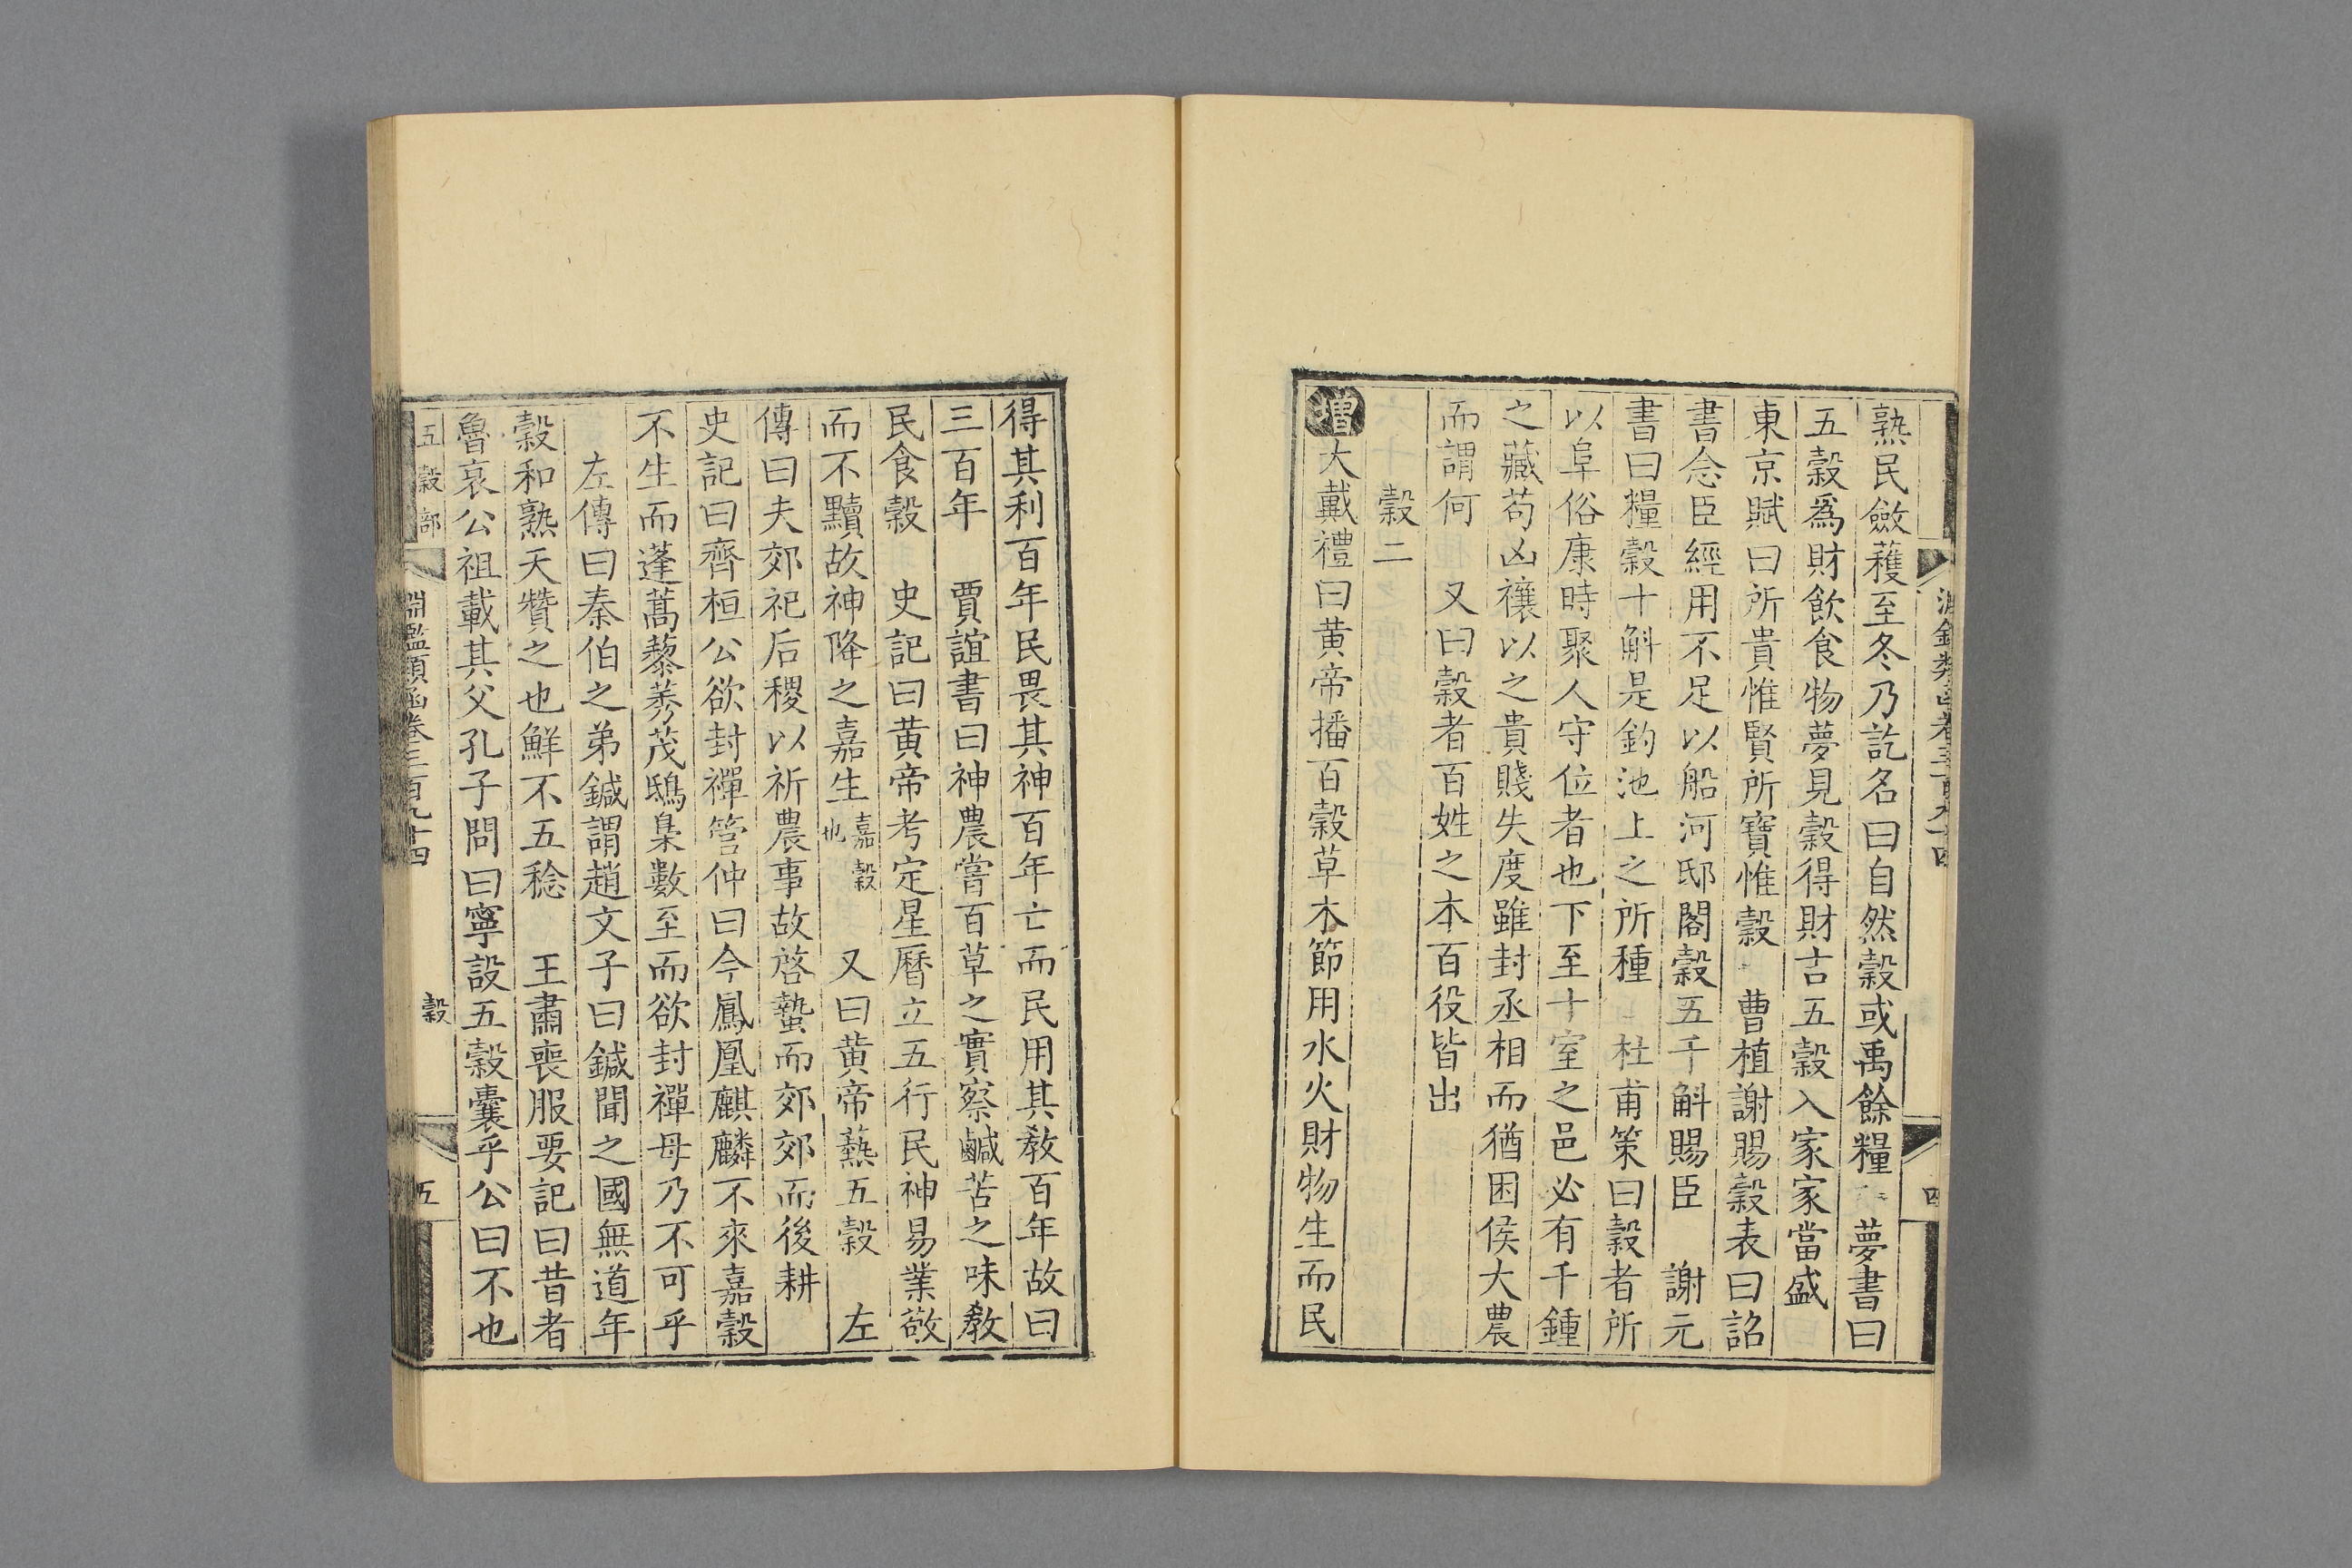 熟民斂穫至冬乃訖名曰自然穀或禹餘糧 夢書曰
五穀爲財飲食物夢見穀得財吉五穀入家家當盛
東京賦曰所貴惟賢所寶惟穀 曹植謝賜穀表曰詔
書念臣經用不足以船河邸閣穀五千斛賜臣 謝元
書曰糧穀十斛是釣池上之所種 杜甫策曰穀者所
以阜俗康時聚人守位者也下至十室之邑必有千鍾
之藏苟凶禳以之貴賤失度雖封丞相而猶困侯大農
而謂何 又曰穀者百姓之本百役皆出
穀二
增大戴禮曰黄帝播百穀草木節用水火財物生而民
得其利百年民畏其神百年亡而民用其教百年故曰
三百年 賈誼書曰神農嘗百草之實察鹹苦之味教
民食穀 史記曰黄帝考定星曆立五行民神易業敬
而不黷故神降之嘉生嘉穀也 又曰黄帝蓺五穀 左
傳曰夫郊祀后稷以祈農事故啓蟄而郊郊而後耕
史記曰齊桓公欲封禪管仲曰今鳳凰麒麟不來嘉穀
不生而蓬蒿藜莠茂鴟梟數至而欲封禪毋乃不可乎
左傳曰秦伯之弟鍼謂趙文子曰鍼聞之國無道年
穀和熟天贊之也鮮不五稔 王肅喪服要記曰昔者
魯哀公祖載其父孔子問曰寧設五穀囊乎公曰不也
五穀部 淵鑑類函卷三百九十四 穀 五